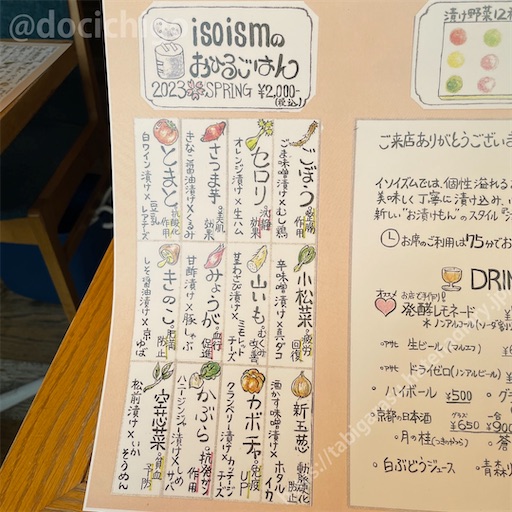 @docich
isoismの
おひるごはん
2023 SPRING ¥2,000-
(税込)
漬け野菜12種
ごぼう
ごま味噌漬け×むし鶏
セロリ
オレンジ漬け×生ハム
沈静効果
さつま芋
きなこ醤油漬け×くるみ
美肌効果
とまと
白ワイン漬け×豆乳レアチーズ
抗酸化作用
小松菜
辛味噌漬け×真ダコ
疲労回復
山いも
茎わさび漬け×ミモレットチーズ
むくみ改善
みょうが
甘酢漬け×豚しゃぶ
血行促進
きのこ
しそ醤油漬け×京ゆば
肥満防止
新玉葱
酒かす味噌漬け×ホタルイカ
動脈硬化防止
カボチャ
クランベリー漬け×カッテージチーズ
免疫UP
かぶら
ハニージンジャー漬け×〆サバ
抗発ガン作用
空芯菜
松前漬け×いかそうめん
貧血予防
ご来店ありがとうございま
イソイズムでは、個性溢れる
美味しく丁寧に漬け込み、
新しい"お漬けもん"のスタイル
お席のご利用は75分でお
DRIN
オススメ お店で手作り!
発酵レモネード ¥
※ノンアルコール(ソーダ割り
・アサヒ 生ビール(マルエフ) ¥
・アサヒ ドライゼロ(ノンアルビール) ¥
・ハイボール ¥500 ・グラ
・京都の日本酒 グラス ¥650 一合 ¥900
・月の桂(つきのかつら) ・蒼
・白ぶどうジュース ・青森り